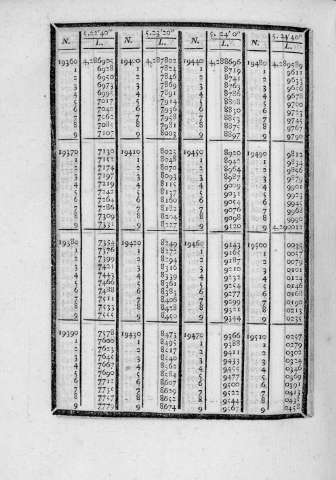 5.22'40" 5.23'20" 5.24'0" 5.24'40"
N. L. N. L. N. L. N. L.
19360 4.286905 19400 4.287802 19440 4.288696 19480 4.289589
1 6928 1 7824 1 8719 1 9611
2 6950 2 7846 2 8741 2 9633
3 6973 3 7869 3 8763 3 9656
4 6995 4 7891 4 8786 4 9678
5 7017 5 7914 5 8808 5 9700
6 7040 6 7936 6 8830 6 9723
7 7062 7 7958 7 8853 7 9745
8 7085 8 7981 8 8875 8 9767
9 7107 9 8003 9 8897 9 9790
19370 7130 19410 8025 19450 8920 19490 9812
1 7152 1 8048 1 8942 1 9834
2 7174 2 8070 2 8964 2 9856
3 7197 3 8093 3 8987 3 9879
4 7219 4 8115 4 9009 4 9901
5 7242 5 8137 5 9031 5 9923
6 7264 6 8160 6 9054 6 9946
7 7286 7 8182 7 9076 7 9968
8 7309 8 8204 8 9098 8 9990
9 7331 9 8227 9 9120 9 4.290012
19380 7354 19420 8249 19460 9143 19500 0035
1 7376 1 8272 1 9165 1 0057
2 7399 2 8294 2 9187 2 0079
3 7421 3 8316 3 9210 3 0101
4 7443 4 8339 4 9232 4 0124
5 7466 5 8361 5 9254 5 0146
6 7488 6 8383 6 9277 6 0168
7 7511 7 8406 7 9299 7 0190
8 7533 8 8428 8 9321 8 0213
9 7555 9 8450 9 9344 9 0235
19390 7578 19430 8473 19470 9366 19510 0257
1 7600 1 8495 1 9388 1 0279
2 7623 2 8517 2 9411 2 0302
3 7645 3 8540 3 9433 3 0324
4 7667 4 8562 4 9455 4 0346
5 7690 5 8584 5 9477 5 0369
6 7712 6 8607 6 9500 6 0391
7 7 8629 7 9522 7 0413
8 7757 8 8652 8 9544 8 0435
9 7779 9 8674 9 9567 9 0458